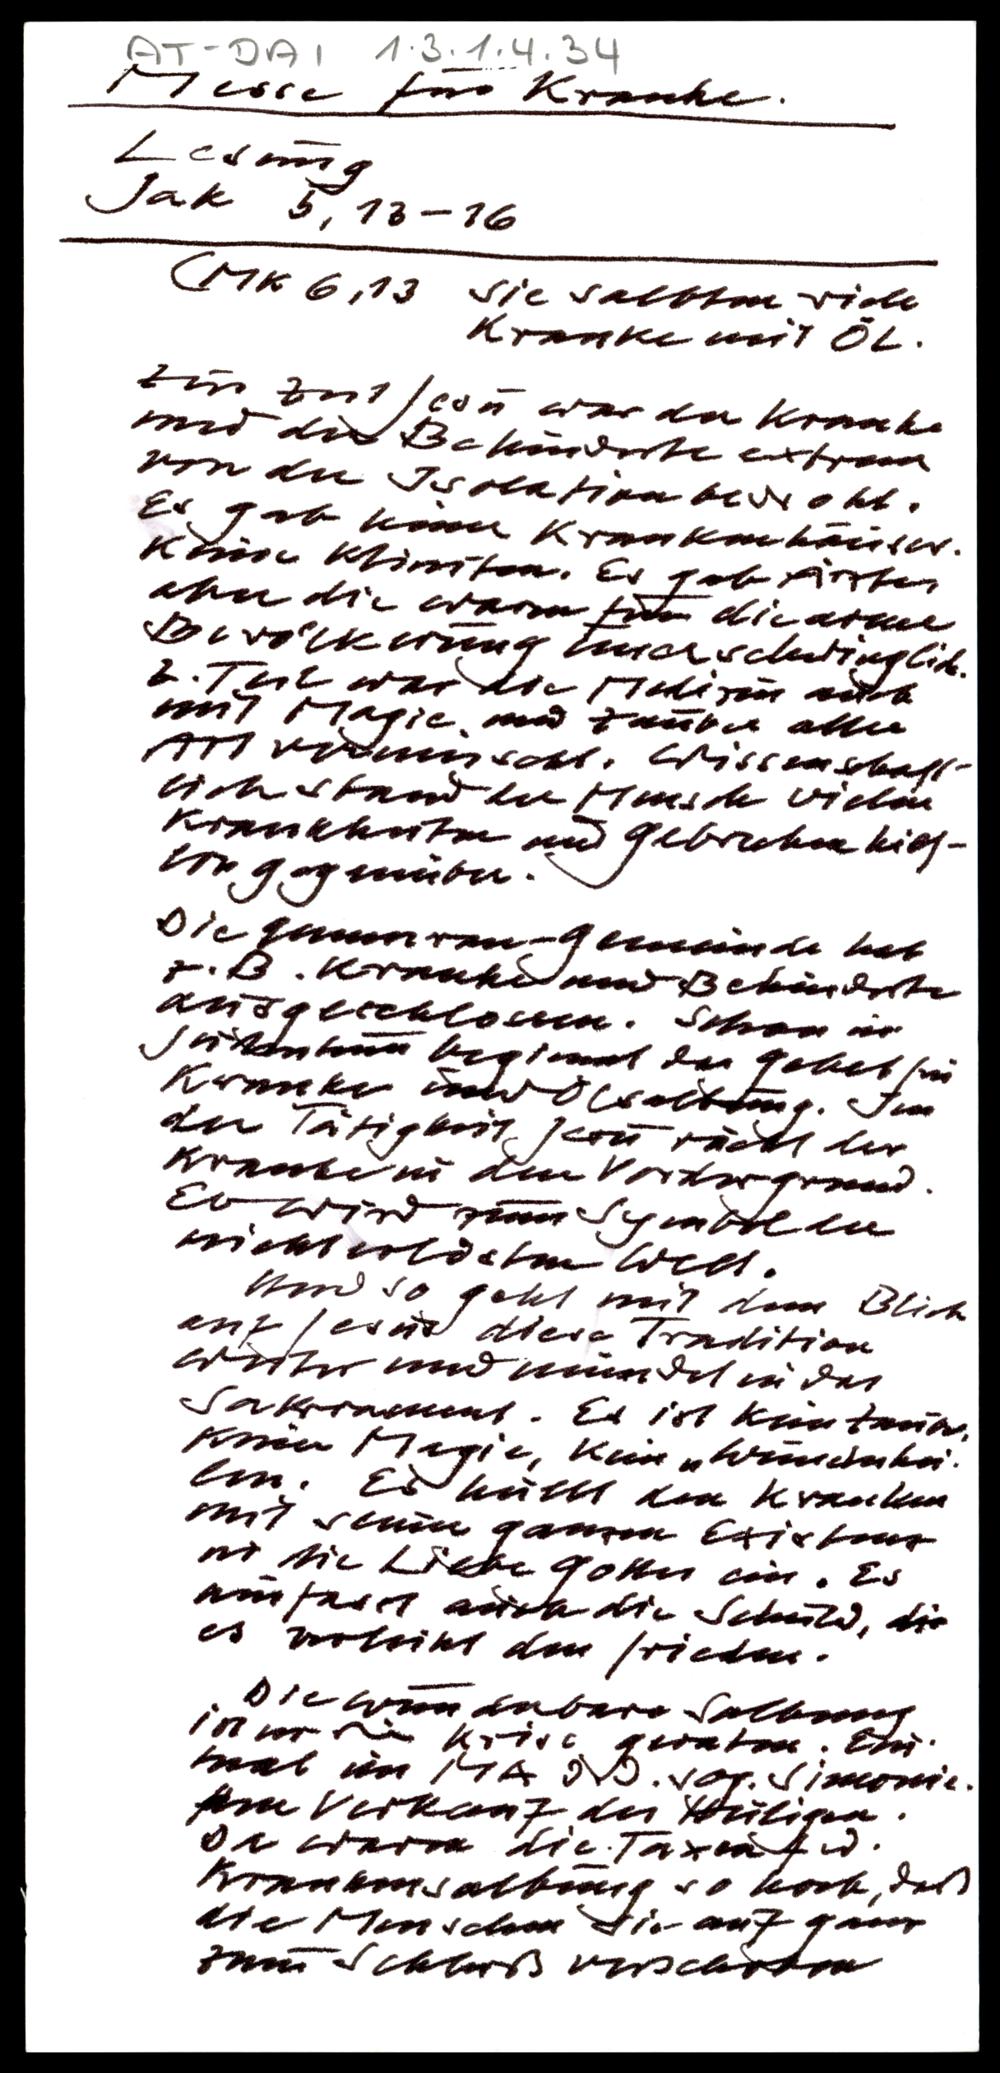 AT-DAI 1.3.1.4.34
Messe für Kranke.
Lesung
Jak 5, 13-16
(Mk 6,13 Sie salbten viele
Kranke mit Öl.
Zur Zeit Jesu war der Kranke
und der Behinderte extrem
von der Isolation bedroht.
Es gab keine Krankenhäuser.
Keine Kliniken. Es gab Ärzte,
aber die waren für die arme
Bevölkerung unerschwinglich.
Z. Teil war die Medizin auch
mit Magie und Zauber aller
Art vermischt. Wissenschaft-
lich stand der Mensch vielen
Krankheiten und Gebrechen hilf-
los gegenüber.
Die Qumran-Gemeinde hat
z.B. Kranke und Behinderte
ausgeschlossen. Schon im
Judentum beginnt das Gebet für
Kranke und Ölsalbung. In
der Tätigkeit Jesu rückt der
Kranke in den Vordergrund.
Er wird zum Symbol der
nicht erlösten Welt.
Und so geht mit dem Blick
auf Jesus diese Tradition
weiter und mündet in das
Sakrament. Es ist kein Zauber,
keine Magie, kein "Wunderhei-
len. Es hüllt den Kranken
mit seiner ganzen Existenz
in die Liebe Gottes ein. Es
umfasst auch die Schuld, die
es verleiht den Frieden.
Die wunderbare Salbung
ist in die Krise geraten. Ein-
mal im MA d.d. sog. Simonie.
Dem Verkauf des Heiligen.
Da waren die Taxen f. d.
Krankensalbung so hoch, daß
die Menschen sie auf ganz
zum Schluß verschoben